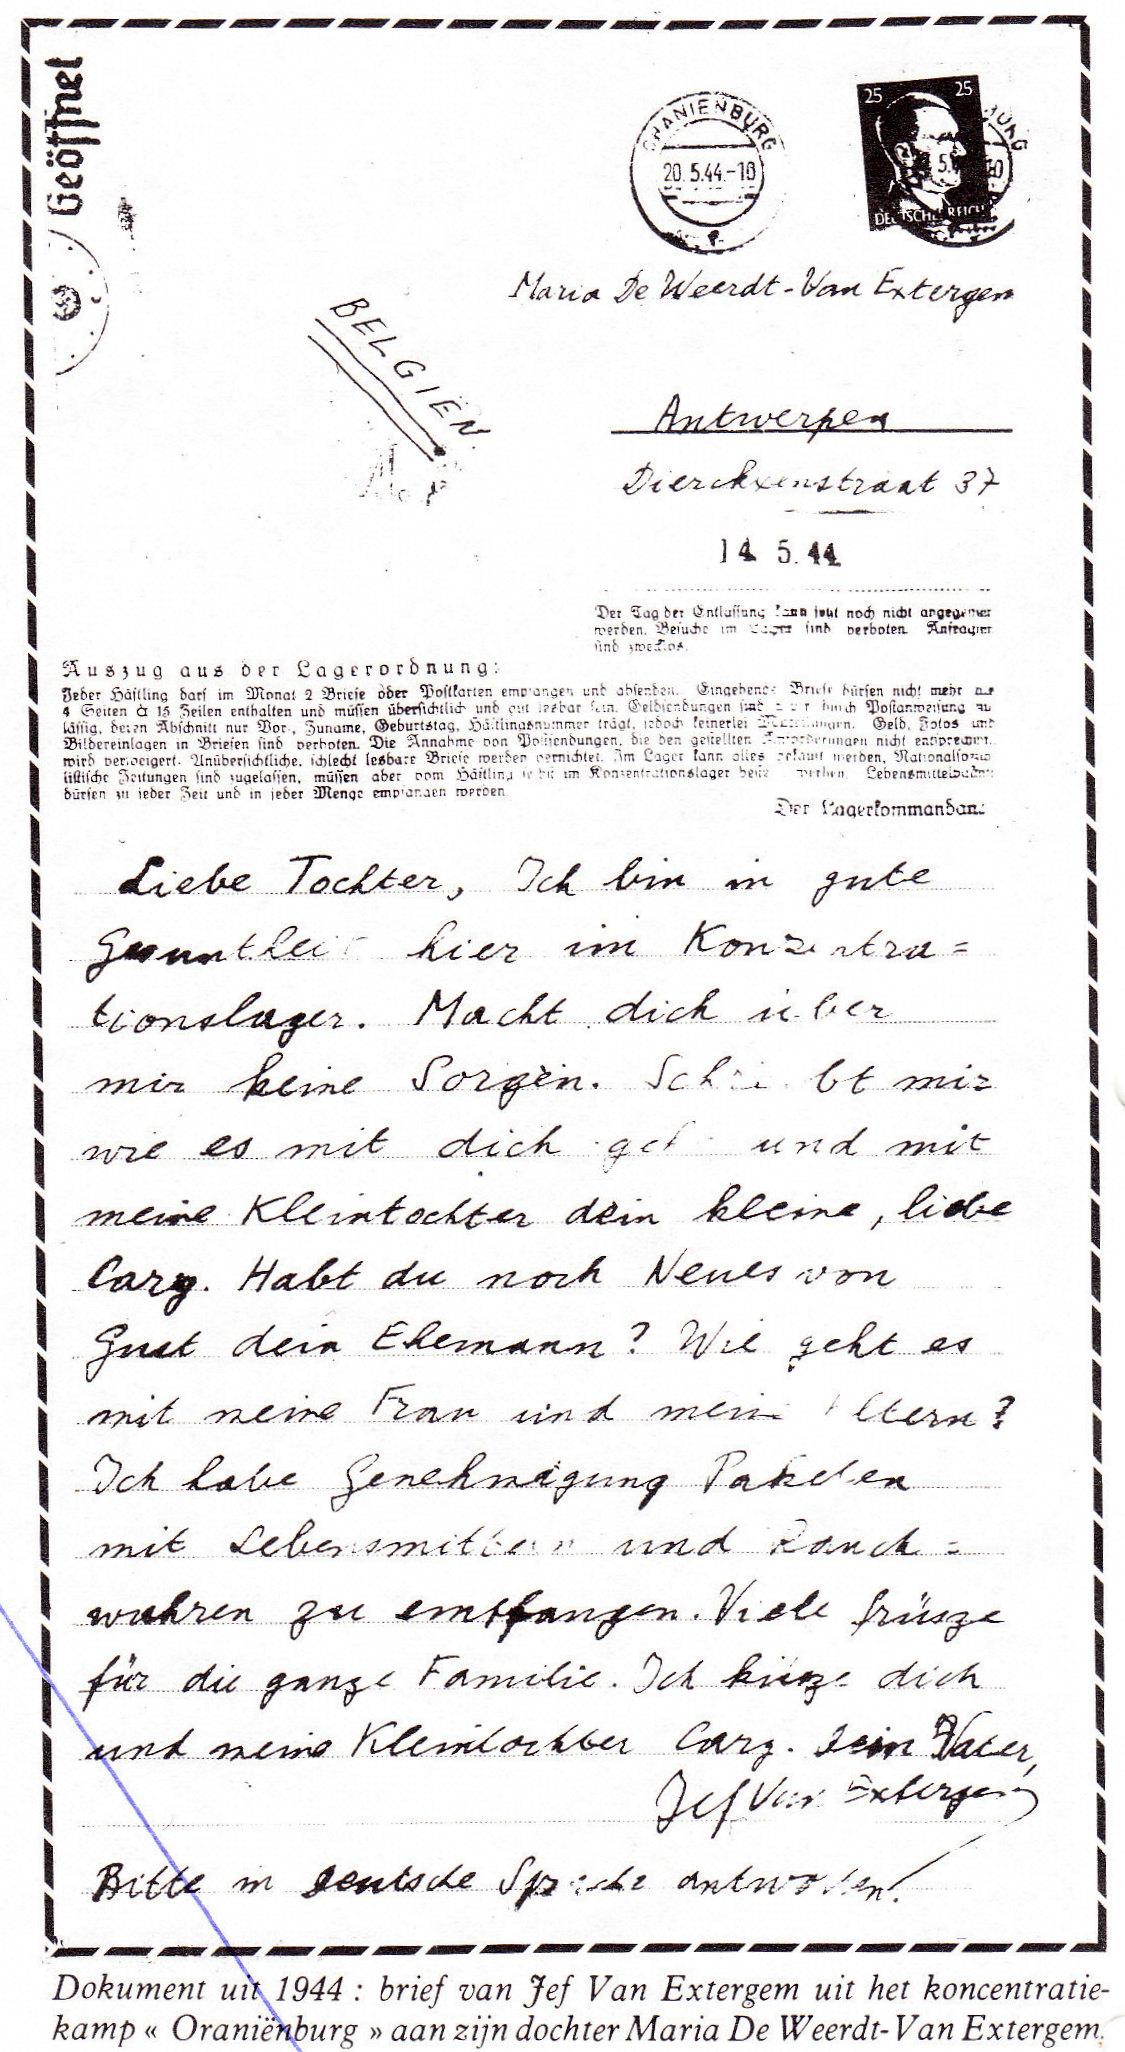 Geöffnet
ORANIENBURG
20.5.44.-18
25 25
DEUTSCHES REICH
Maria De Weerdt-Van Extergem
BELGIEN
Antwerpen
Dierckxenstraat 37
14 5.44
Der Tag der Entlassung kann jetzt noch nicht angegeben
werden. Besuche im Lager sind verboten. Anfragen
sind zwecklos.
Auszug aus der Lagerordnung:
Jeder Häftling darf im Monat 2 Briefe oder Postkarten empfangen und absenden. Eingehende Briefe dürfen nicht mehr als
4 Seiten à 15 Zeilen enthalten und müssen übersichtlich und gut lesbar sein. Geldsendungen sind nur durch Postanweisung zu
lässig, deren Abschnitt nur Vor-, Zuname, Geburtstag, Häftlingsnummer trägt, jedoch keinerlei Mitteilungen. Geld, Fotos und
Bildereinlagen in Briefen sind verboten. Die Annahme von Postsendungen, die den gestellten Anforderungen nicht entsprechen,
wird verweigert. Unübersichtliche, schlecht lesbare Briefe werden vernichtet. Im Lager kann alles gekauft werden. Nationalsozia
listische Zeitungen sind zugelassen, müssen aber vom Häftling selbst im Konzentrationslager bestellt werden. Lebensmittelpakete
dürfen zu jeder Zeit und in jeder Menge empfangen werden.
Der Lagerkommandant
Liebe Tochter, Ich bin in gute
Gesuntheit hier im Konzentra=
tionslager. Macht dich über
mir keine Sorgen. Schreibt mir
wie es mit dich geht und mit
meine Kleintochter dein kleine, liebe
Cary. Habt du noch Neues von
Gust dein Ehemann? Wie geht es
mit meine Frau und meine Eltern?
Ich habe Genehmigung Paketen
mit Lebensmitteln und Rauch=
wahren zu empfangen. Viele früsze
für die ganze Familie. Ich küsze dich
und meine Kleintochter Cary. Dein Vater,
Jef Van Extergem
Bitte in Deutsche Sprache antworten!
Dokument uit 1944 : brief van Jef Van Extergem uit het koncentratie-
kamp « Oraniënburg » aan zijn dochter Maria De Weerdt-Van Extergem.